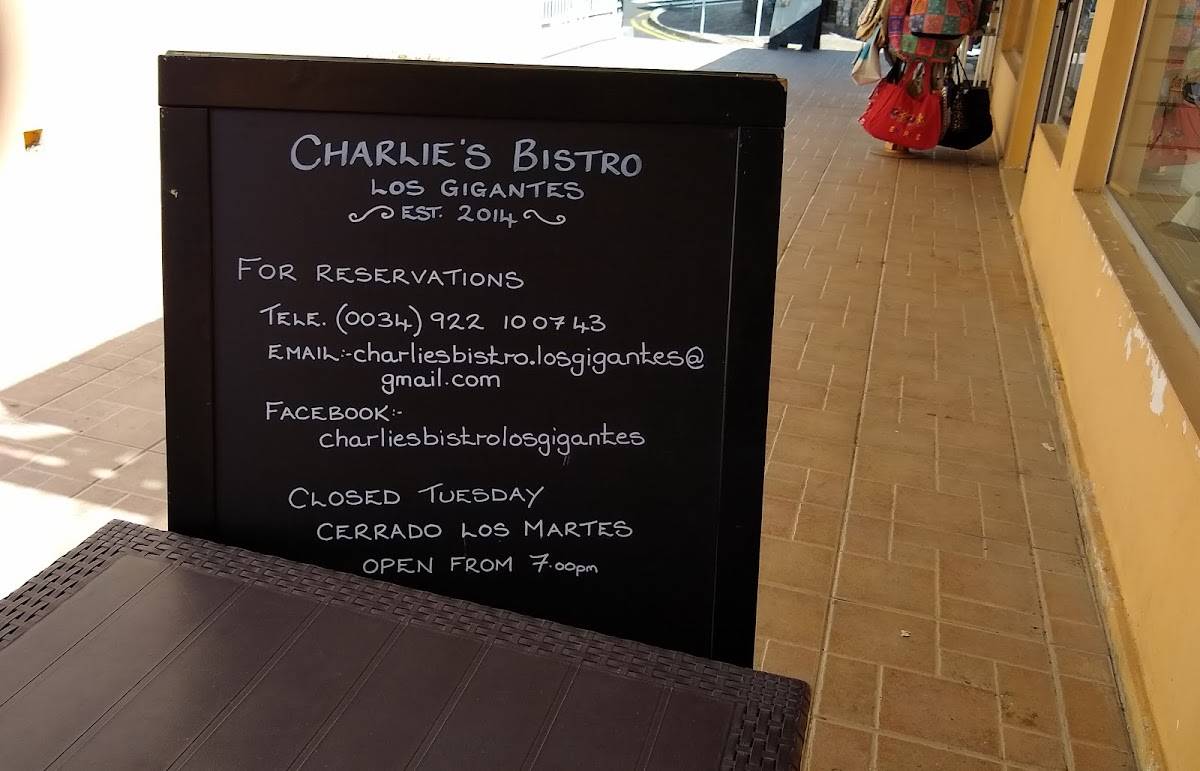 CHARLIE'S BISTRO
LOS GIGANTES
EST. 2014
FOR RESERVATIONS
TELE. (0034) 922 100743
EMAIL:-charliesbistro.losgigantes@
gmail.com
FACEBOOK:-
charliesbistrolosgigantes
CLOSED TUESDAY
CERRADO LOS MARTES
OPEN FROM 7.00pm